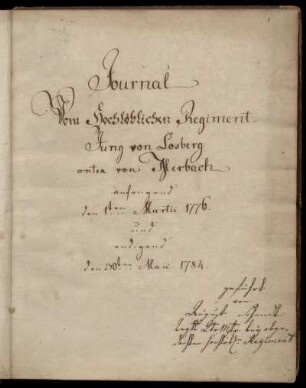 Journal
Vom Hochlöblichen Regiment
Jung von Losberg
anten von Merbach
anfangend
den 1ten Martii 1776.
und
endigend
den 30ten Maii 1784
geführt
von
August
Regiment